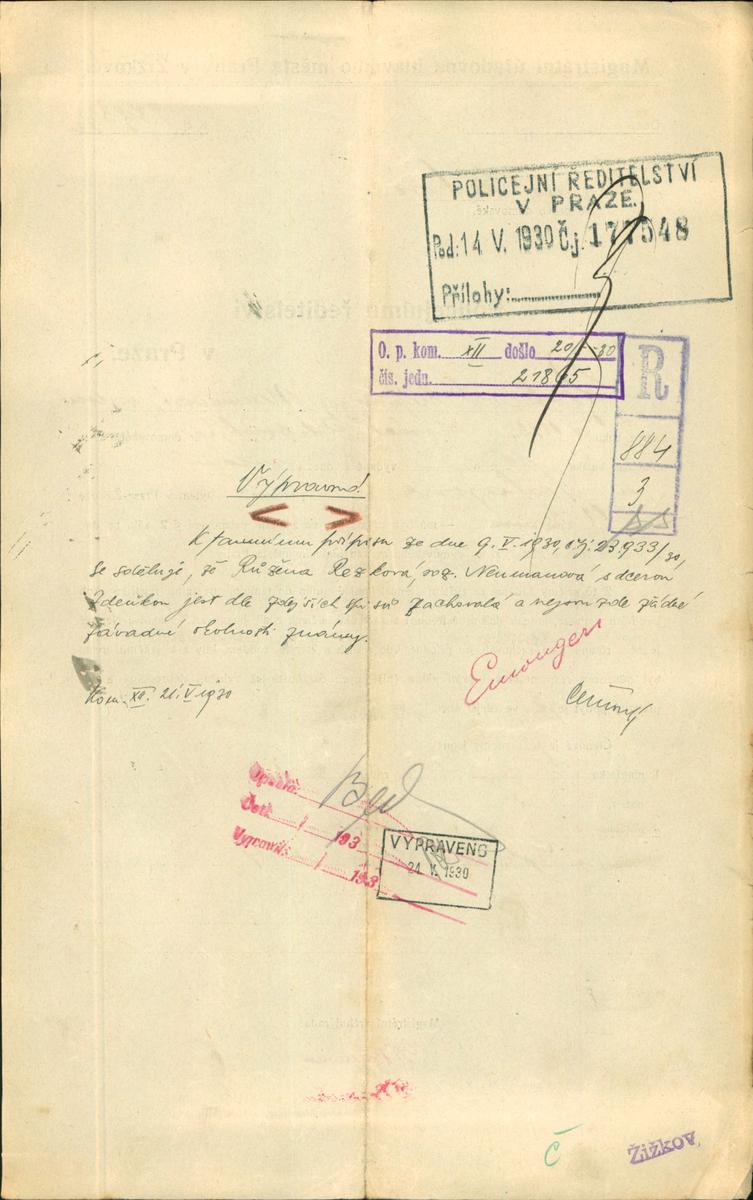 POLICEJNÍ ŘEDITELSTVÍ
V PRAZE.
Pod: 14 V. 1930 Č.j. 177548
Přílohy:
O. p. kom. XII došlo 20/ -30
čís. jedn. 21865
R
884
3
Výpravna
< >
K tamnímu přípisu ze dne 9. V. 1930, čj. 23.933/30,
se sděluje, že Růžena Rezková, roz. Neumanová s dcerou
Zdeňkou jest dle zdejších spisů zachovalá a nejsou zde žádné
závadné okolnosti známy.
Kom. XII. 21. V 1930
Opsala:
Četl: / 193
Vypravil: / 193
VYPRAVENO
24. V. 1930
Č
Žižkov,